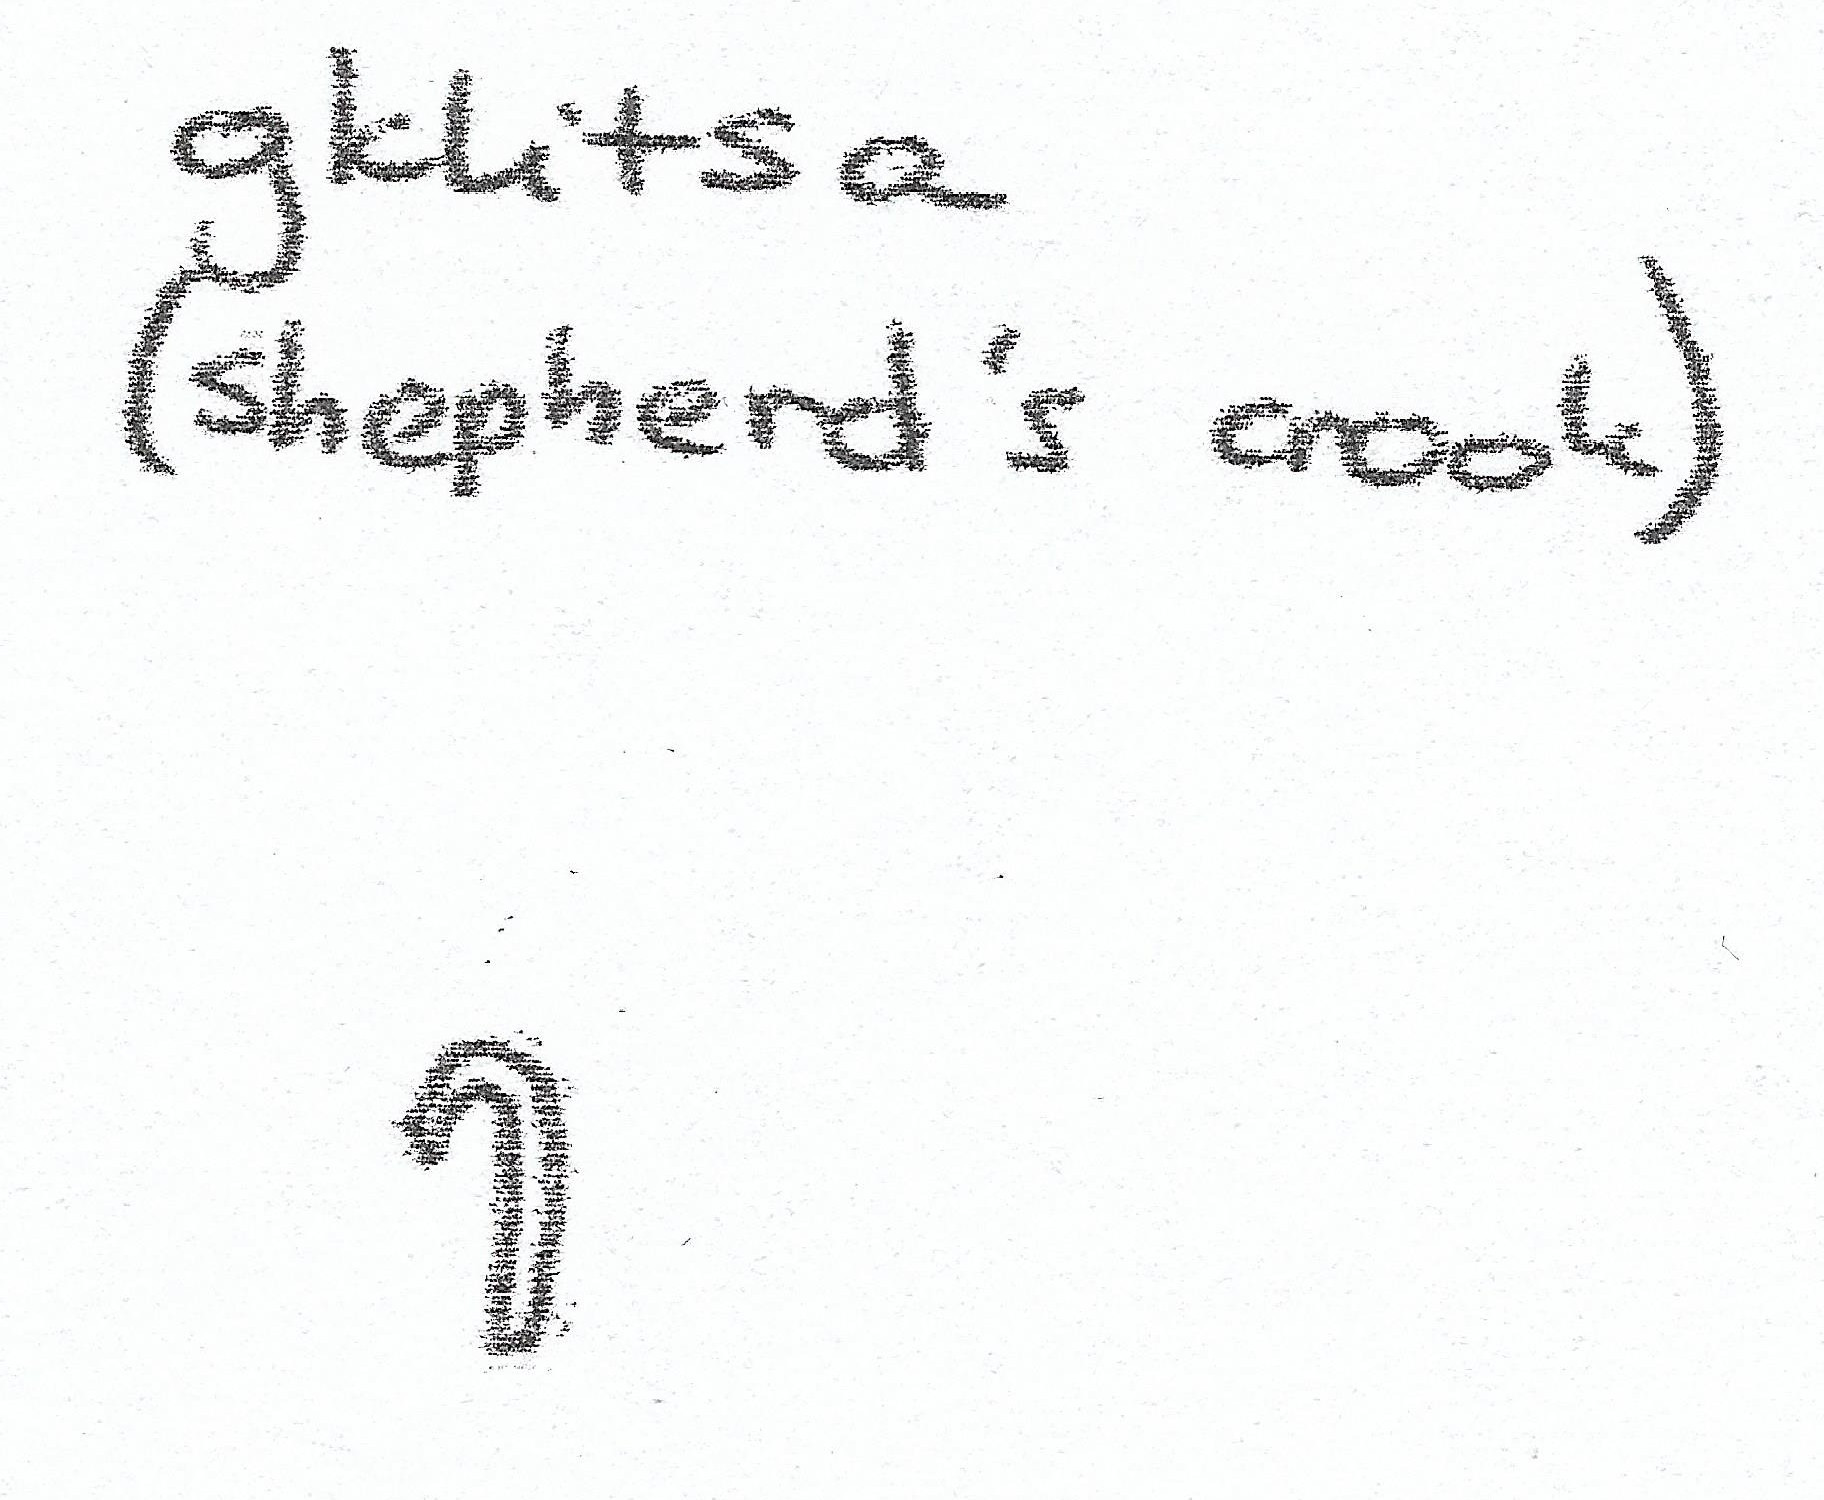 gklitsa
(shepherd's crook)